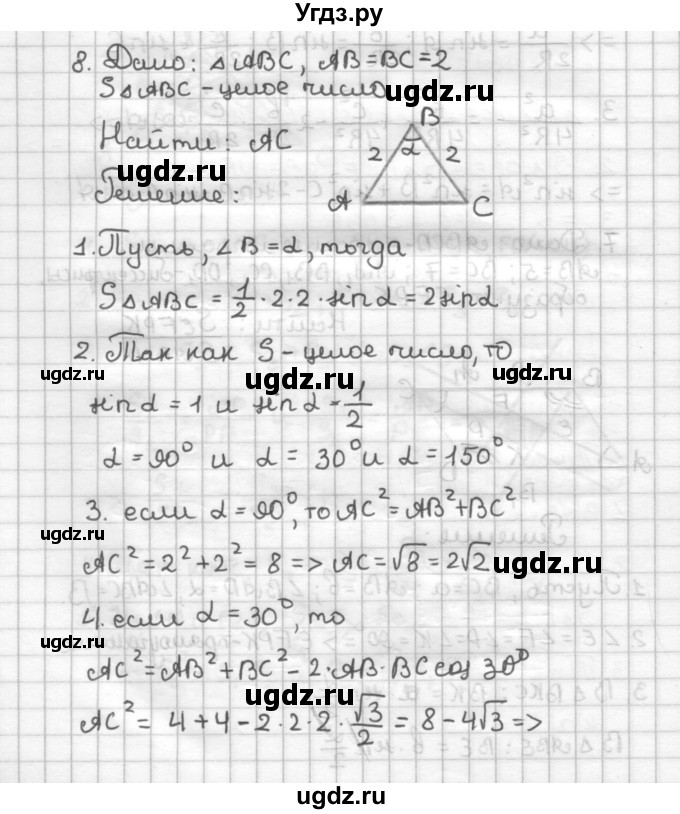 Угдз.ру
8. Дано: △ABC, AB=BC=2
S△ABC - целое число
ugdz.ru
Найти: AC
B
2 α 2
ugdz.ru
Решение:
A C
1. Пусть, ∠B = α, тогда
S△ABC = 1/2 · 2 · 2 · sin α = 2 sin α
2. Так как S - целое число, то
ugdz.ru ugdz.ru ugdz.ru
sin α = 1 и sin α = 1/2
α = 90° и α = 30° и α = 150°
3. если α = 90°, то AC² = AB² + BC²
ugdz.ru
AC² = 2² + 2² = 8 => AC = √8 = 2√2
ugdz.ru
4. если α = 30°, то
ugdz.ru
AC² = AB² + BC² - 2·AB·BC cos 30°
ugdz.ru
AC² = 4 + 4 - 2·2·2·√3/2 = 8 - 4√3 =>
ugdz.ru
ugdz.ru